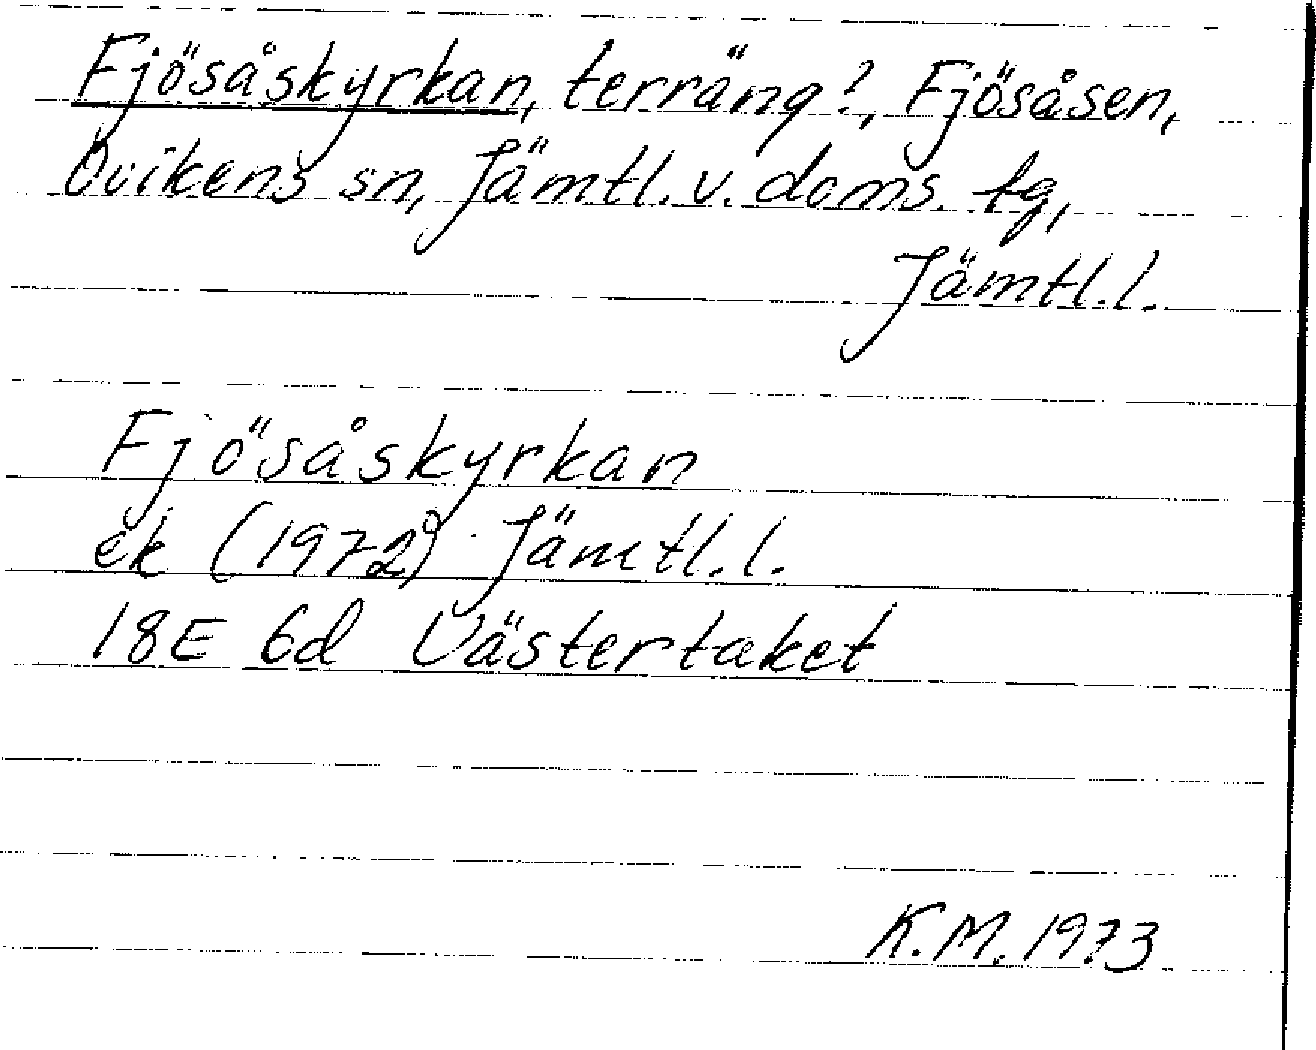 Fjösåskyrkan, terräng?, Fjösåsen,
Ovikens sn, Jämtl. v. doms. tg,
Jämtl. l.
Fjösåskyrkan
ek (1972) Jämtl. l.
18E 6d Västertaket
K.M. 1973